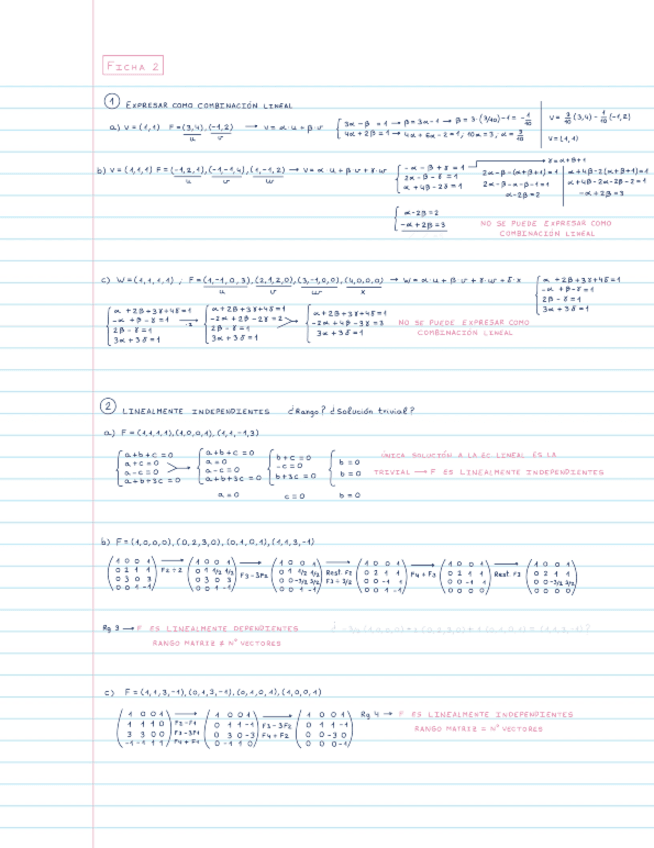 FICHA 2
① EXPRESAR COMO COMBINACIÓN LINEAL
a) v = (1,1) F = (3,4), (-1,2) → v = α·u + β·v { 3α - β = 1 → β = 3α - 1 → β = 3·(3/10) - 1 = -1/10
u v 4α + 2β = 1 → 4α + 6α - 2 = 1, 10α = 3, α = 3/10
v = 3/10 (3,4) - 1/10 (-1,2)
v = (1,1)
b) v = (1,1,1) F = (-1,2,1), (-1,-1,4), (1,-1,-2) → v = α·u + β·v + γ·w
u v w
-α - β + γ = 1 → γ = α + β + 1
2α - β - γ = 1
α + 4β - 2γ = 1
2α - β - (α + β + 1) = 1
2α - β - α - β - 1 = 1
α - 2β = 2
α + 4β - 2(α + β + 1) = 1
α + 4β - 2α - 2β - 2 = 1
-α + 2β = 3
α - 2β = 2
-α + 2β = 3
NO SE PUEDE EXPRESAR COMO
COMBINACIÓN LINEAL
c) W = (1,1,1,1) ; F = (1,-1,0,3), (2,1,2,0), (3,-1,0,0), (4,0,0,0) → W = α·u + β·v + γ·w + δ·x
u v w x
α + 2β + 3γ + 4δ = 1
-α + β - γ = 1
2β - γ = 1
3α + 3δ = 1
α + 2β + 3γ + 4δ = 1
-α + β - γ = 1 → ·2
2β - γ = 1
3α + 3δ = 1
α + 2β + 3γ + 4δ = 1
-2α + 2β - 2γ = 2
2β - γ = 1
3α + 3δ = 1
α + 2β + 3γ + 4δ = 1
-2α + 4β - 3γ = 3
3α + 3δ = 1
NO SE PUEDE EXPRESAR COMO
COMBINACIÓN LINEAL
② LINEALMENTE INDEPENDIENTES ¿Rango? ¿Solución trivial?
a) F = (1,1,1,1), (1,0,0,1), (1,1,-1,3)
a+b+c = 0
a+c = 0
a-c = 0
a+b+3c = 0
a+b+c = 0
a = 0
a-c = 0
a+b+3c = 0
a = 0
b+c = 0
-c = 0
b+3c = 0
c = 0
b = 0
b = 0
b = 0
ÚNICA SOLUCIÓN A LA EC. LINEAL ES LA
TRIVIAL → F ES LINEALMENTE INDEPENDIENTES
b) F = (1,0,0,0), (0,2,3,0), (0,1,0,1), (1,1,3,-1)
1 0 0 1
0 2 1 1
0 3 0 3
0 0 1 -1
F2 ÷ 2
1 0 0 1
0 1 1/2 1/2
0 3 0 3
0 0 1 -1
F3 - 3F2
1 0 0 1
0 1 1/2 1/2
0 0 -3/2 3/2
0 0 1 -1
Rest. F2
F3 ÷ 3/2
1 0 0 1
0 2 1 1
0 0 -1 1
0 0 1 -1
F4 + F3
1 0 0 1
0 2 1 1
0 0 -1 1
0 0 0 0
Rest. F3
1 0 0 1
0 2 1 1
0 0 -3/2 3/2
0 0 0 0
Rg 3 → F ES LINEALMENTE DEPENDIENTES
RANGO MATRIZ ≠ Nº VECTORES
c) F = (1,1,3,-1), (0,1,3,-1), (0,1,0,1), (1,0,0,1)
1 0 0 1
1 1 1 0
3 3 0 0
-1 -1 1 1
F2 - F1
F3 - 3F1
F4 + F1
1 0 0 1
0 1 1 -1
0 3 0 -3
0 -1 1 0
F3 - 3F2
F4 + F2
1 0 0 1
0 1 1 -1
0 0 -3 0
0 0 0 -1
Rg 4 → F ES LINEALMENTE INDEPENDIENTES
RANGO MATRIZ = Nº VECTORES